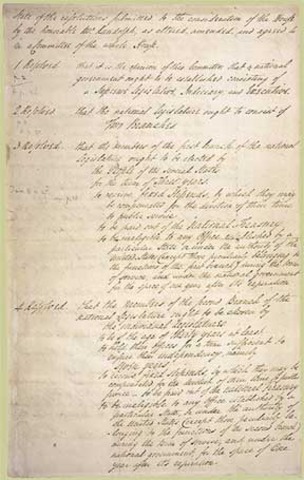 State of the resolutions submitted to the consideration of the House
by the honorable Mr. Randolph, as altered, amended, and agreed to
in a Committee of the whole House.
1 Resolved that it is the opinion of this Committee that a national
government ought to be established consisting of
a Supreme Legislative, Judiciary, and Executive.
2 Resolved that the national Legislature ought to consist of
Two Branches
3 Resolved that the members of the first branch of the national
Legislature ought to be elected by
the People of the several States
for the term of Three years
to receive fixed stipends, by which they may
be compensated for the devotion of their time
to public service
to be paid out of the National Treasury
to be ineligible to any Office established by a
particular State or under the authority of the
United States (except those peculiarly belonging to
the functions of the first branch) during the term
of service, and under the national government
for the space of one year after its expiration
4 Resolved that the members of the second Branch of the
national Legislature ought to be chosen by
the individual Legislatures
to be of the age of thirty years at least
to hold their offices for a term sufficient to
ensure their independency, namely
seven years
to receive fixed stipends, by which they may be
compensated for the devotion of their time to public
service to be paid out of the national Treasury
to be ineligible to any Office established by a
particular State, or under the authority of
the United States (except those peculiarly be
longing to the functions of the second branch)
during the term of service, and under the
national government, for the space of one
year after its expiration